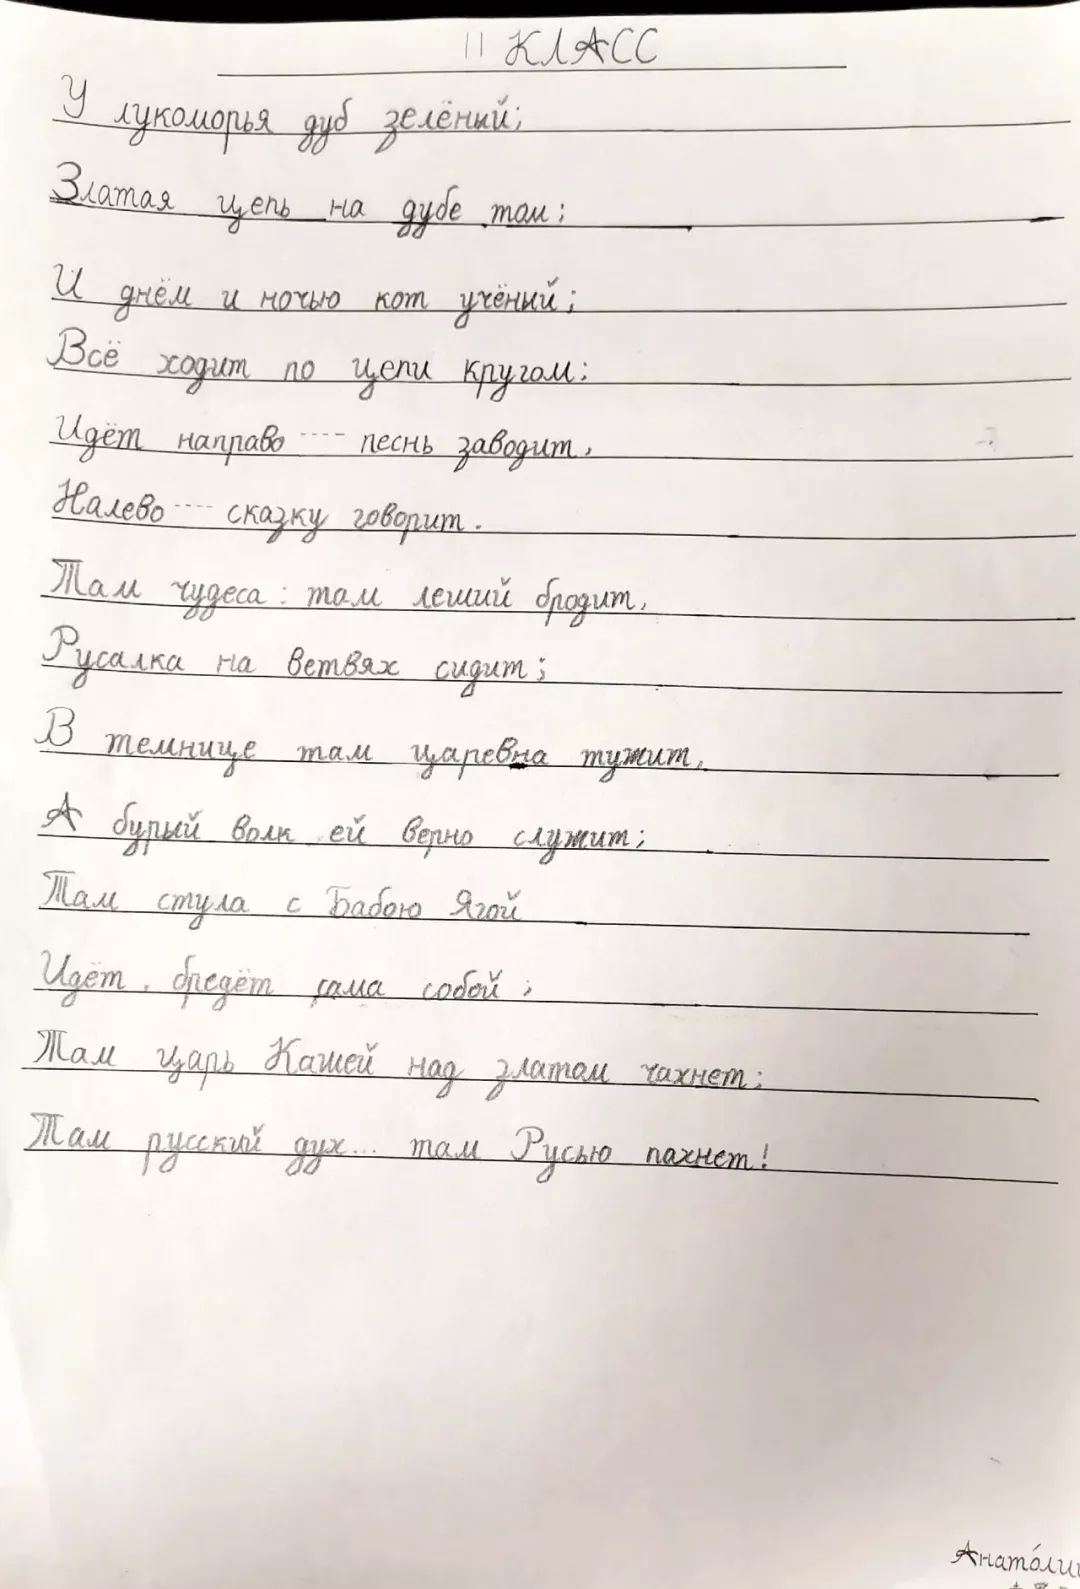 11 КЛАСС
У лукоморья дуб зелёный;
Златая цепь на дубе том;
И днём и ночью кот учёный;
Всё ходит по цепи кругом;
Идёт направо ---- песнь заводит,
Налево ---- сказку говорит.
Там чудеса: там леший бродит,
Русалка на ветвях сидит;
В темнице там царевна тужит,
А бурый волк ей верно служит;
Там стула с Бабою Ягой
Идёт, бредёт сама собой;
Там царь Кашей над златом чахнет;
Там русский дух... там Русью пахнет!